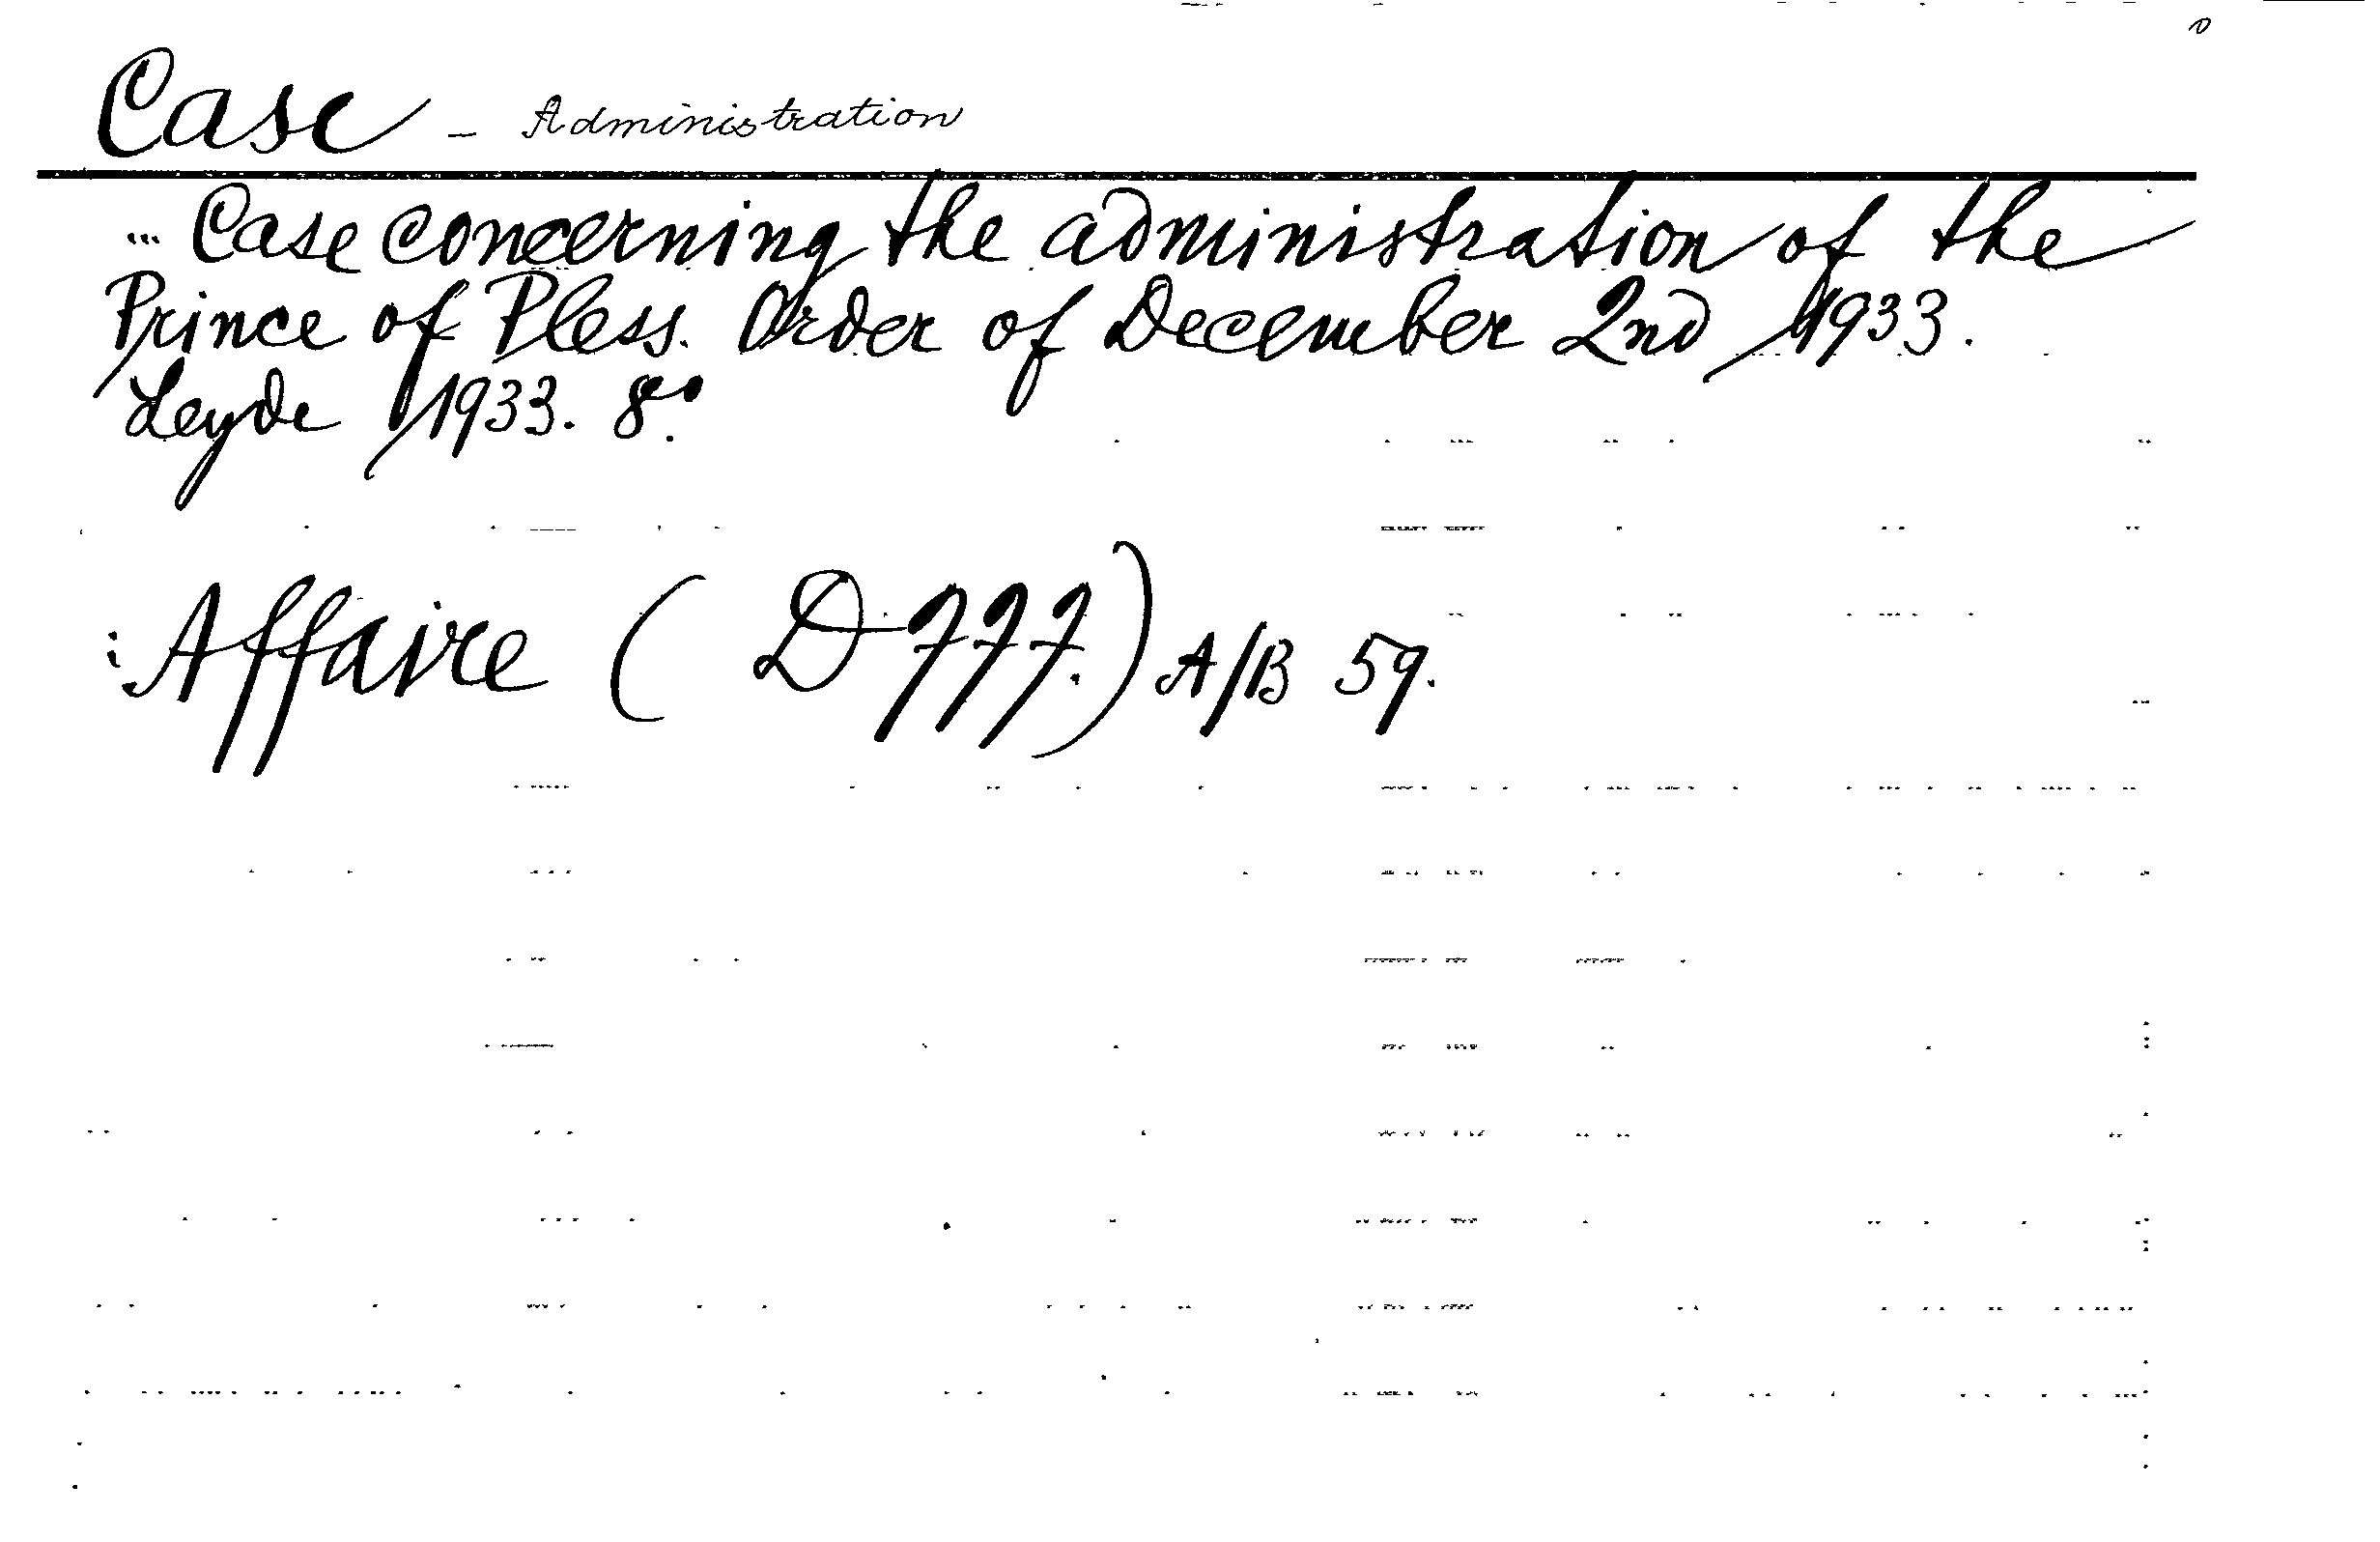 Case - Administration
... Case concerning the administration of the
Prince of Pless. Order of December 2nd 1933.
Leyde 1933. 8°.
: Affaire ( D 777.) A/B 59.